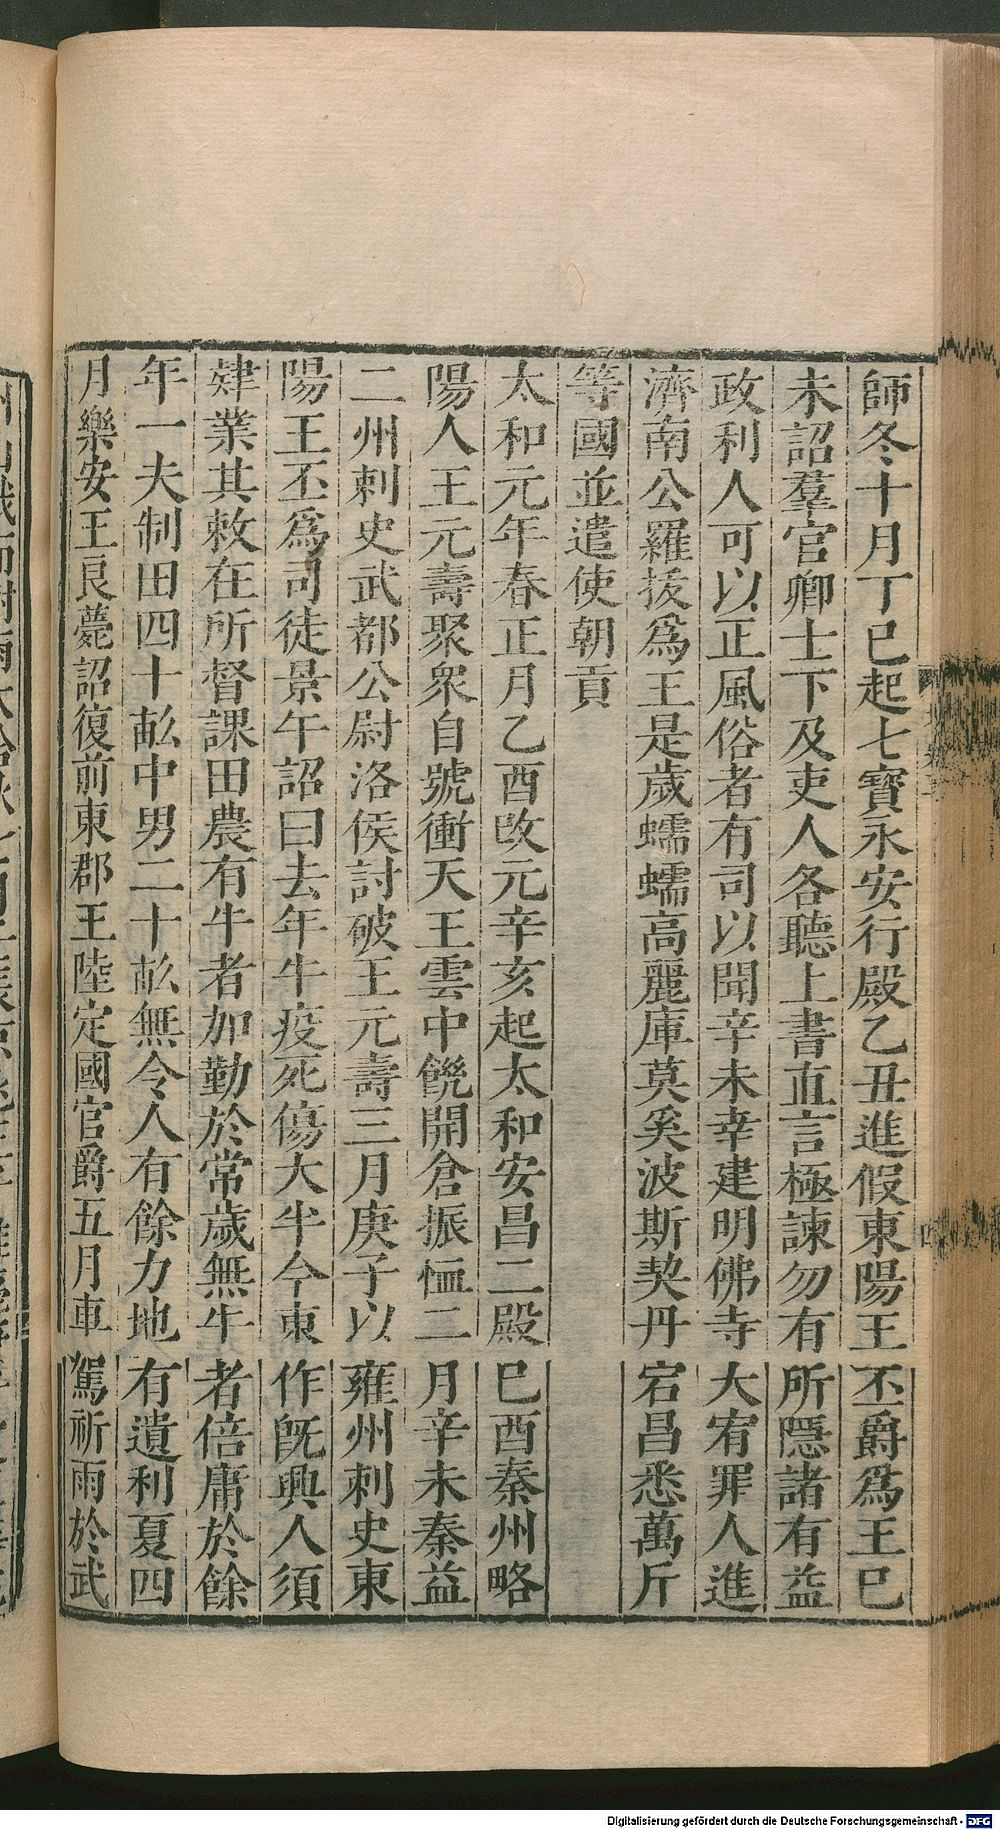 師冬十月丁巳起七寶永安行殿乙丑進假東陽王丕爵爲王巳
未詔羣官卿士下及吏人各聽上書直言極諫勿有所隱諸有益
政利人可以正風俗者有司以聞辛未幸建明佛寺大宥罪人進
濟南公羅拔爲王是歲蠕蠕高麗庫莫奚波斯契丹宕昌悉萬斤
等國並遣使朝貢
太和元年春正月乙酉改元辛亥起太和安昌二殿巳酉秦州略
陽人王元壽聚衆自號衝天王雲中饑開倉振恤二月辛未秦益
二州刺史武都公尉洛侯討破王元壽三月庚子以雍州刺史東
陽王丕爲司徒景午詔曰去年牛疫死傷大半今東作既興人須
肄業其敕在所督課田農有牛者加勤於常歲無牛者倍庸於餘
年一夫制田四十畝中男二十畝無令人有餘力地有遺利夏四
月樂安王良薨詔復前東郡王陸定國官爵五月車駕祈雨於武
Digitalisierung gefördert durch die Deutsche Forschungsgemeinschaft - DFG